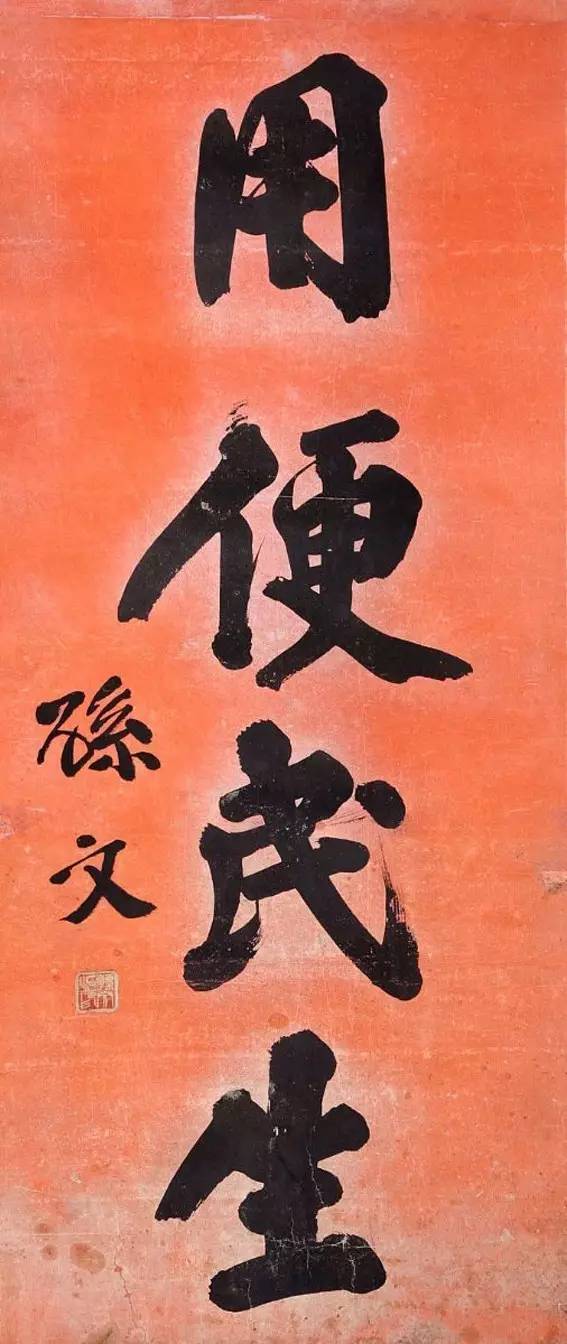 用便民生
孫文